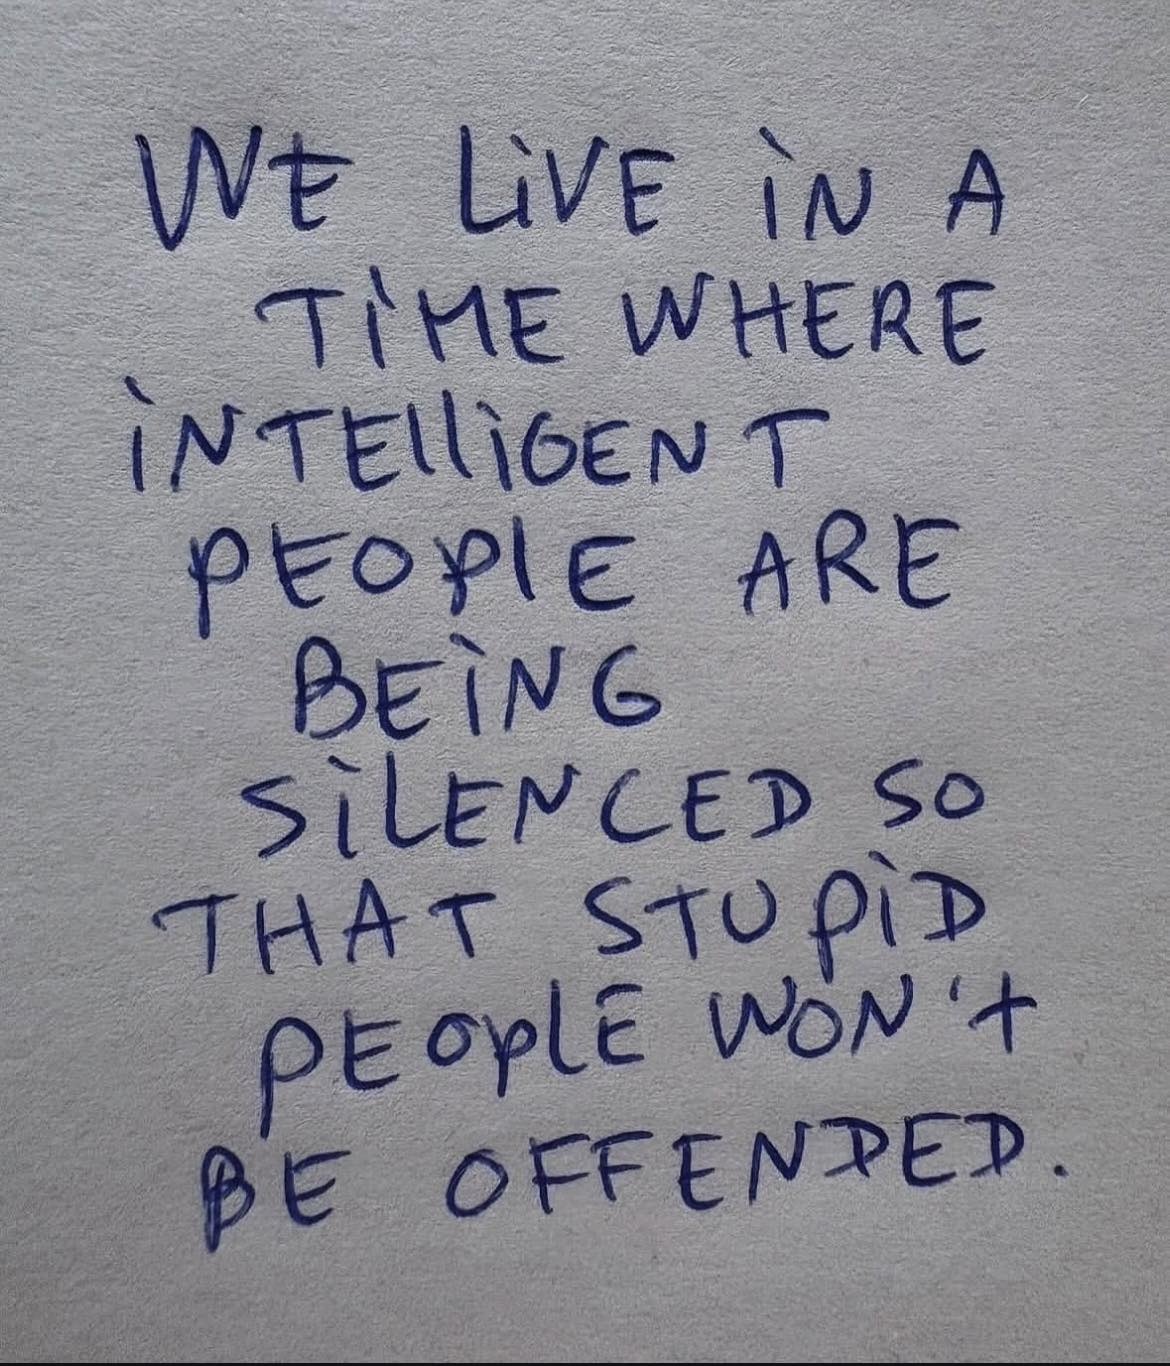 WE LiVE iN A
TiME WHERE
iNTElliGENT
PEOPlE ARE
BEiNG
SiLENCED SO
THAT STUPiD
PEOPlE WON't
BE OFFENDED.